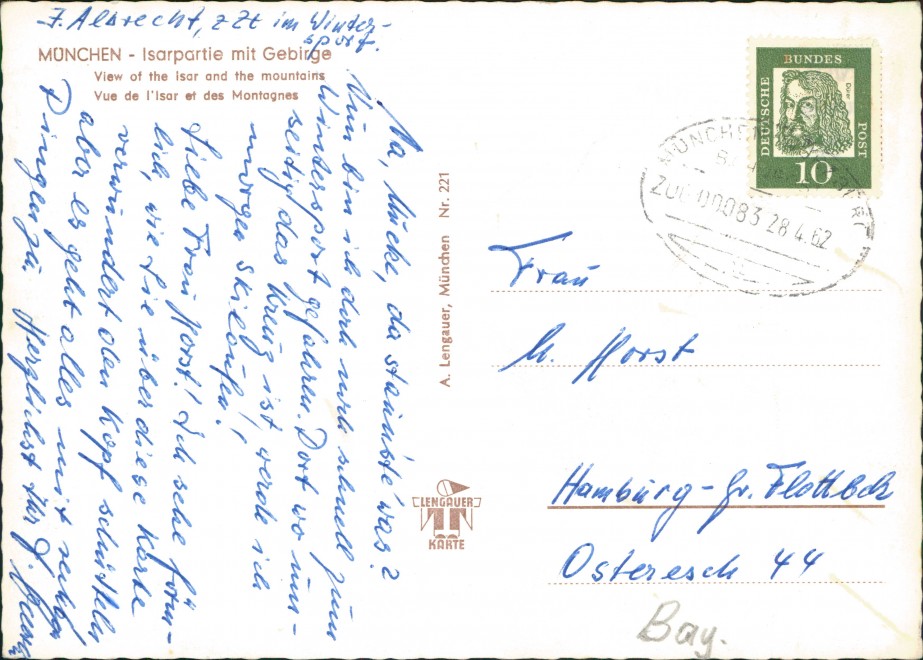 J. Albrecht, z Zt im Winter-
sport.
MÜNCHEN - Isarpartie mit Gebirge
View of the Isar and the mountains
Vue de l'Isar et des Montagnes
Na, Mucke, da staunste was?
Nun bin ich doch noch schnell zum
Wintersport gefahren. Dort wo
seitig das Kreuz ist, werde ich
morgen skilaufen!
Liebe Frau Horst! Ich sehe förm-
lich, wie Sie über diese Karte
verwundert den Kopf schütteln
aber es geht alles mit
Dingen zu. Herzlichst Ihr J.
A. Lengauer, München Nr. 221
LENGAUER
KARTE
DEUTSCHE
BUNDES
POST
Dürer
10
MÜNCHEN
ZUG 00083 28.4.62
Frau
M. Horst
Hamburg-Gr. Flottbek
Osteresch 44
Bay.